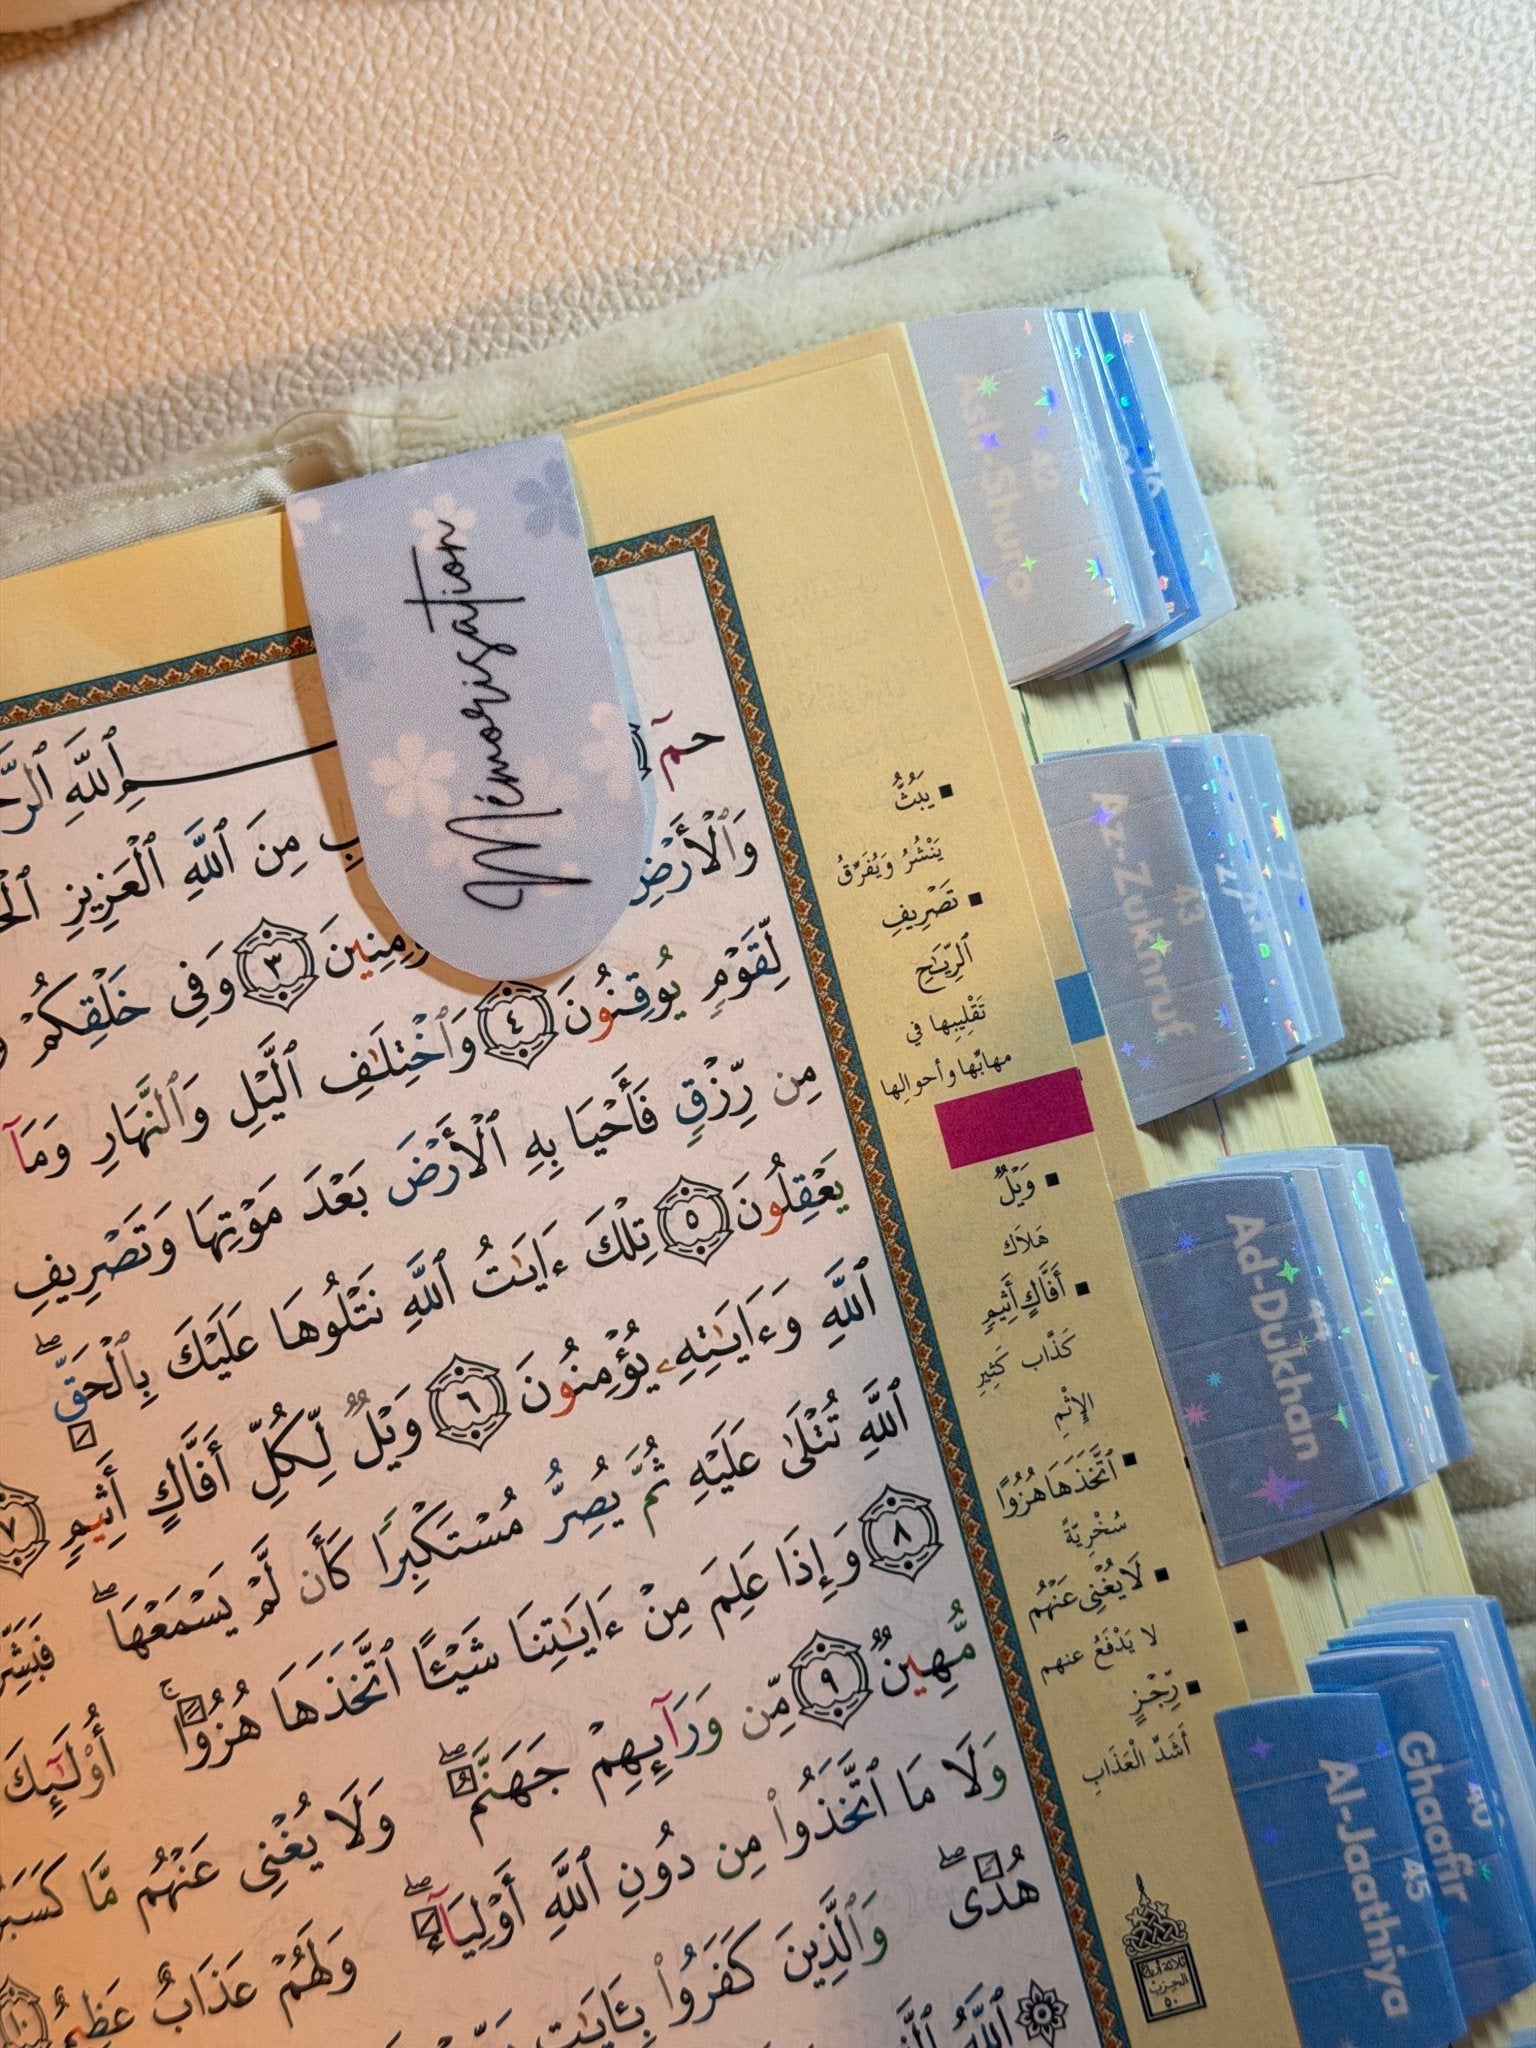 Memorisation
بِسْمِ ٱللَّهِ
حمٓ
مِنَ ٱللَّهِ ٱلْعَزِيزِ
وَٱلْأَرْضِ
٣ وَفِى خَلْقِكُمْ
لِّقَوْمٍ يُوقِنُونَ ٤ وَٱخْتِلَٰفِ ٱلَّيْلِ وَٱلنَّهَارِ وَمَآ
مِن رِّزْقٍ فَأَحْيَا بِهِ ٱلْأَرْضَ بَعْدَ مَوْتِهَا وَتَصْرِيفِ
يَعْقِلُونَ ٥ تِلْكَ ءَايَٰتُ ٱللَّهِ نَتْلُوهَا عَلَيْكَ بِٱلْحَقِّ ۖ
ٱللَّهِ وَءَايَٰتِهِۦ يُؤْمِنُونَ ٦ وَيْلٌ لِّكُلِّ أَفَّاكٍ أَثِيمٍ ٧
ٱللَّهِ تُتْلَىٰ عَلَيْهِ ثُمَّ يُصِرُّ مُسْتَكْبِرًا كَأَن لَّمْ يَسْمَعْهَا ۖ
٨ وَإِذَا عَلِمَ مِنْ ءَايَٰتِنَا شَيْـًٔا ٱتَّخَذَهَا هُزُوًا ۚ أُو۟لَٰٓئِكَ
مُّهِينٌ ٩ مِّن وَرَآئِهِمْ جَهَنَّمُ ۖ وَلَا يُغْنِى عَنْهُم مَّا
وَلَا مَا ٱتَّخَذُوا۟ مِن دُونِ ٱللَّهِ أَوْلِيَآءَ ۖ وَلَهُمْ عَذَابٌ عَظِيمٌ ١٠
هُدًى ۖ وَٱلَّذِينَ كَفَرُوا۟ بِـَٔايَٰتِ
ٱللَّهُ
يَبُثُّ
يَنْشُرُ وَيُفَرِّقُ
تَصْرِيفِ
ٱلرِّيَٰحِ
تَقْلِيبِها في
مهابِّها وأحوالِها
وَيْلٌ
هَلَاك
أَفَّاكٍ أَثِيمٍ
كَذَّاب كَثِيرِ
الإِثْمِ
ٱتَّخَذَهَا هُزُوًا
سُخْرِيَّةً
لَا يُغْنِى عَنْهُم
لا يَدْفَعُ عنهم
رِّجْزٍ
أَشَدِّ الْعَذَابِ
ثلاثة أرباع
الحزب
٥٠
Ash-Shura
42
Az-Zukhruf
43
Ad-Dukhan
44
Al-Jaathiya
45
Ghaafir
40